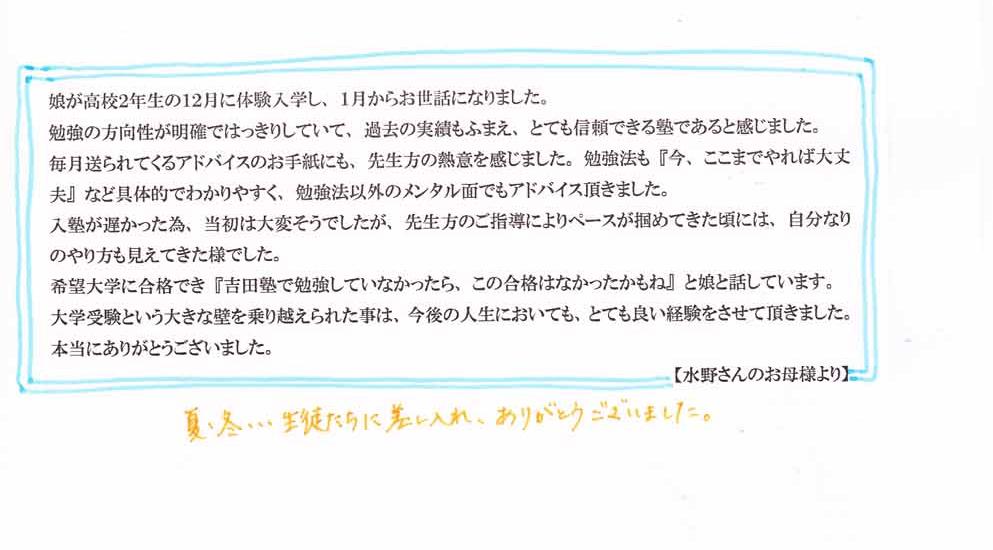 娘が高校2年生の12月に体験入学し、1月からお世話になりました。
勉強の方向性が明確ではっきりしていて、過去の実績もふまえ、とても信頼できる塾であると感じました。
毎月送られてくるアドバイスのお手紙にも、先生方の熱意を感じました。勉強法も『今、ここまでやれば大丈
夫』など具体的でわかりやすく、勉強法以外のメンタル面でもアドバイス頂きました。
入塾が遅かった為、当初は大変そうでしたが、先生方のご指導によりペースが掴めてきた頃には、自分なり
のやり方も見えてきた様でした。
希望大学に合格でき『吉田塾で勉強していなかったら、この合格はなかったかもね』と娘と話しています。
大学受験という大きな壁を乗り越えられた事は、今後の人生においても、とても良い経験をさせて頂きました。
本当にありがとうございました。
【水野さんのお母様より】
夏、冬・・・生徒たちに差し入れ、ありがとうございました。